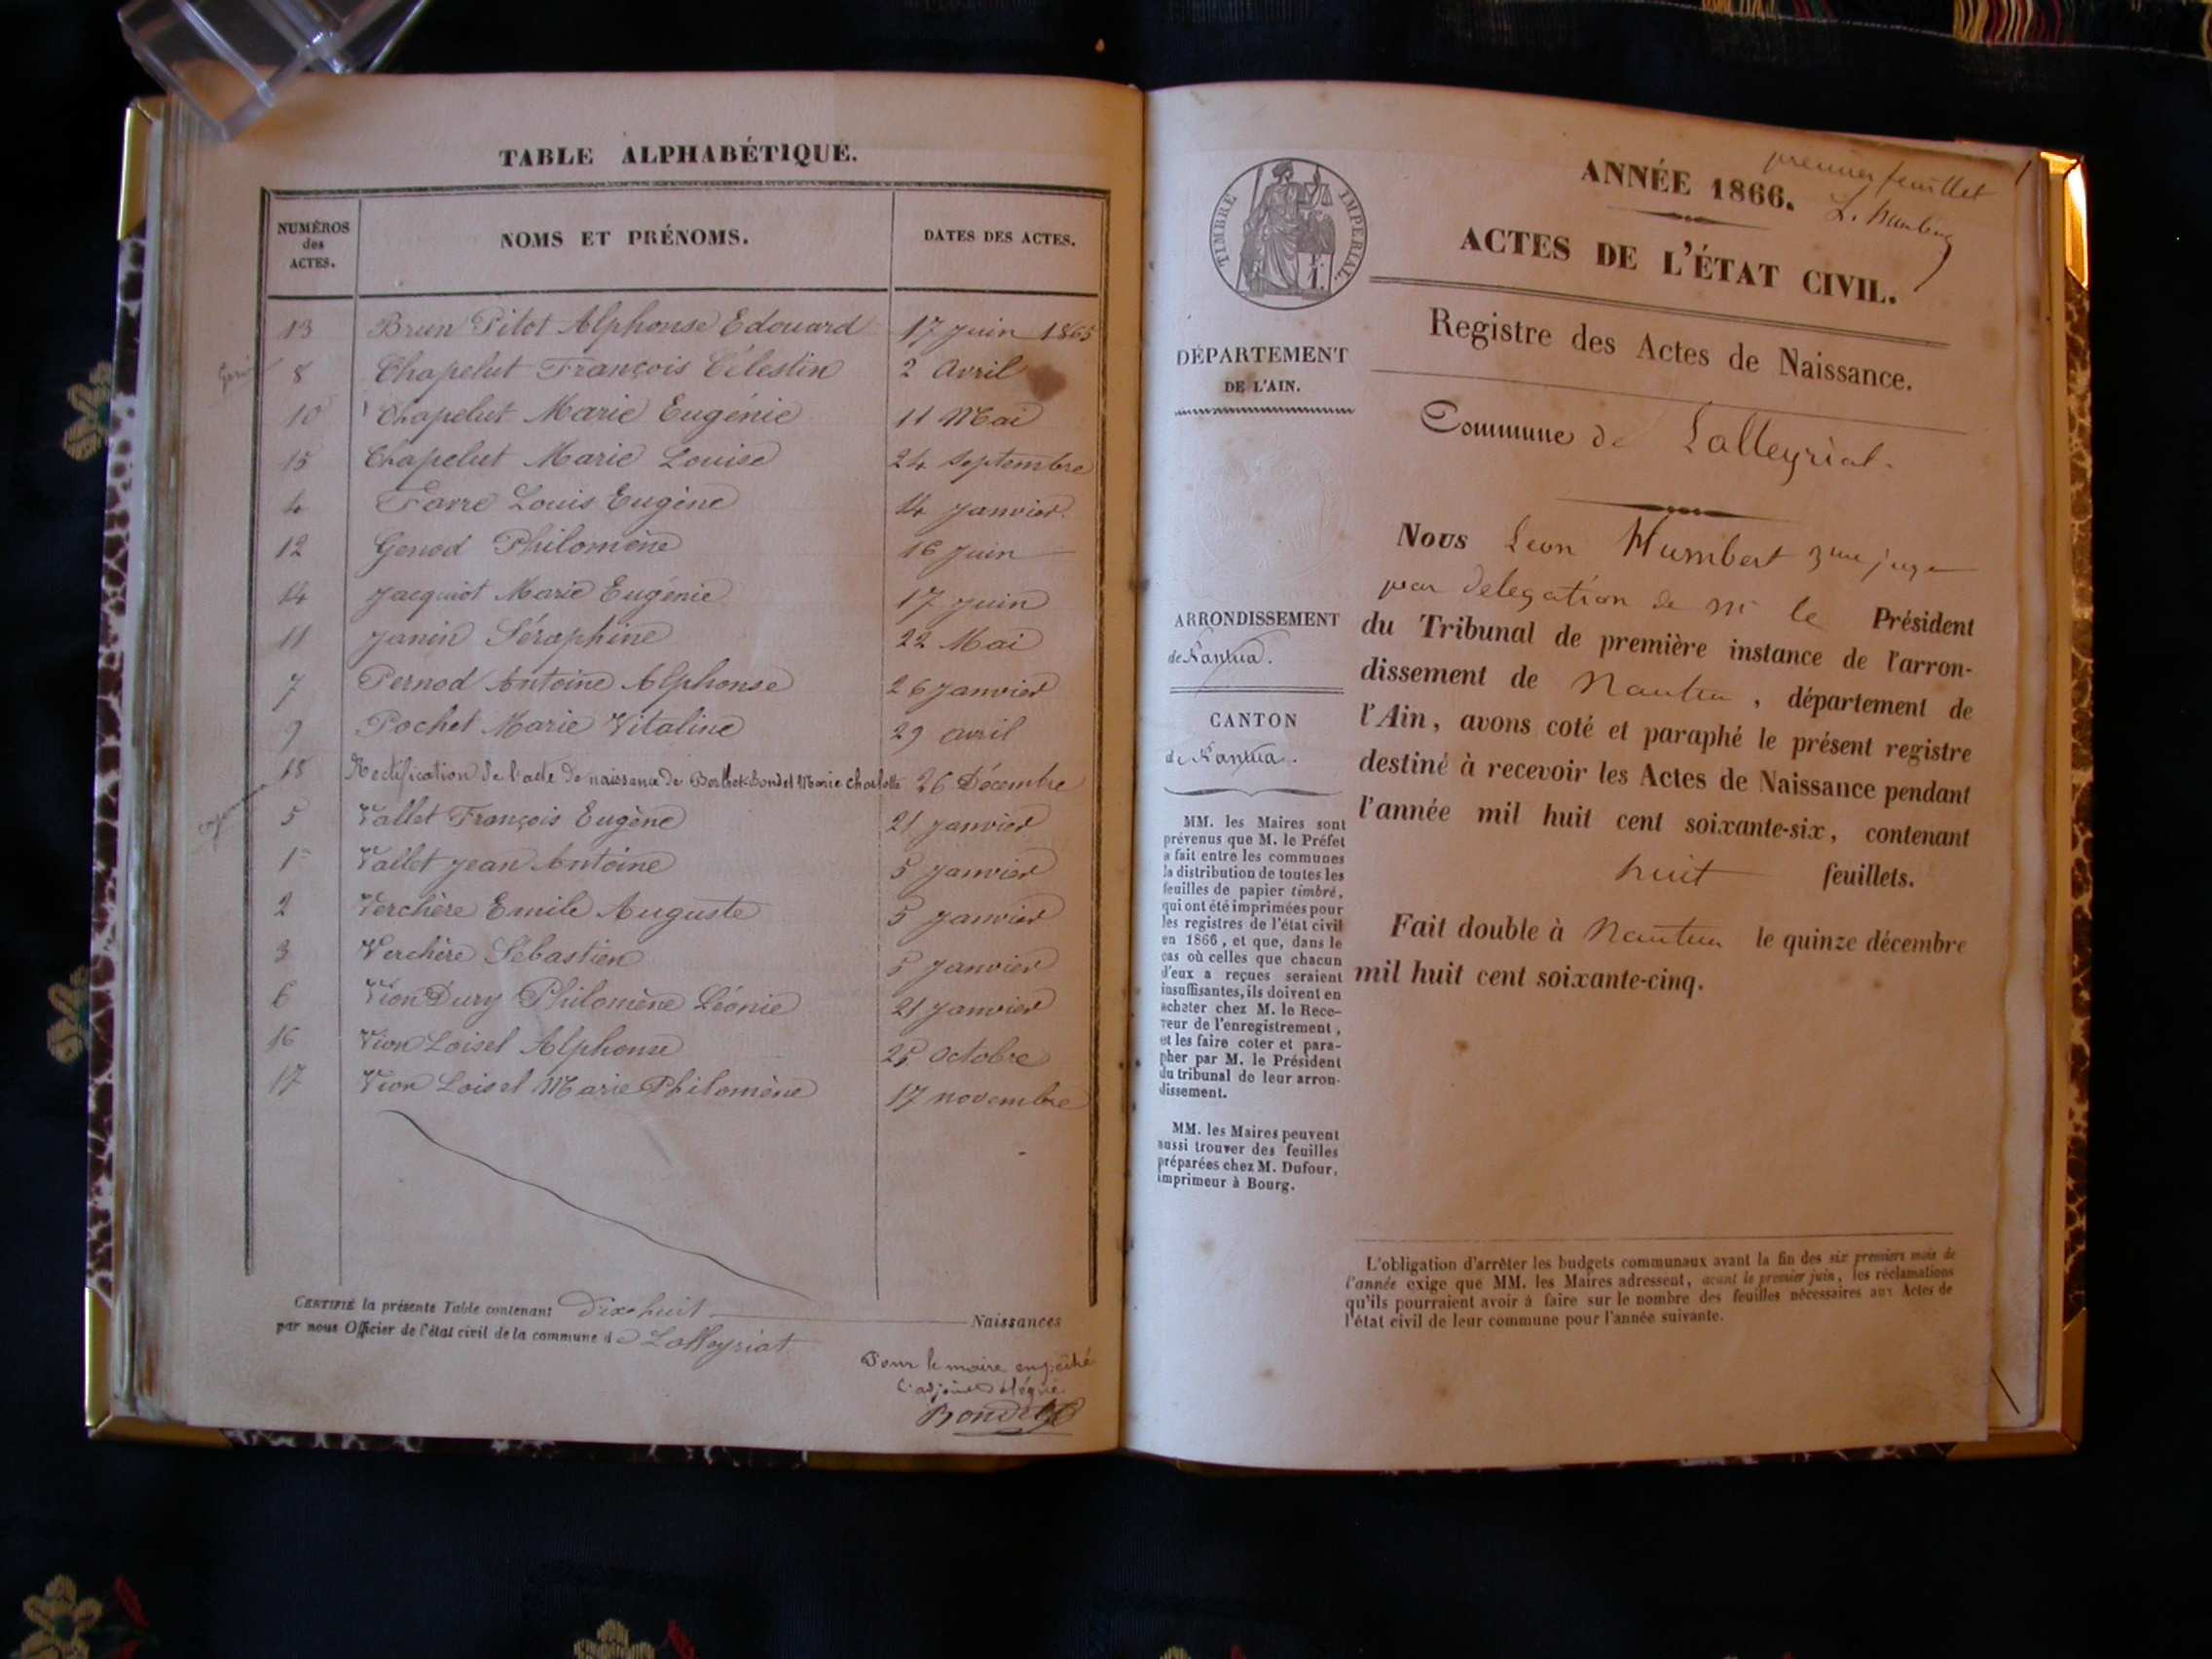 TABLE ALPHABÉTIQUE.
NUMÉROS des ACTES. NOMS ET PRÉNOMS. DATES DES ACTES.
13 Brun Pitot Alphonse Edouard 17 Juin 1865
8 Chapelut François Célestin 2 Avril
10 Chapelut Marie Eugénie 11 Mai
15 Chapelut Marie Louise 24 Septembre
4 Favre Louis Eugène 14 Janvier
12 Genod Philomène 16 Juin
14 Jacquiot Marie Eugénie 17 Juin
11 Janin Séraphine 22 Mai
7 Pernod Antoine Alphonse 26 Janvier
9 Pochet Marie Vitaline 29 avril
18 Rectification de l'acte de naissance de Berthet-Bondet Marie Charlotte 26 Décembre
5 Vallet François Eugène 21 Janvier
1 Vallet Jean Antoine 5 Janvier
2 Verchère Emile Auguste 5 Janvier
3 Verchère Sébastien 5 Janvier
6 Vion Dury Philomène Léonie 21 Janvier
16 Vion Loisel Alphonse 25 Octobre
17 Vion Loisel Marie Philomène 17 novembre
CERTIFIÉ la présente Table contenant Dix-huit Naissances
par nous Officier de l'état civil de la commune de Lalleyriat
Pour le maire empêché
L'adjoint délégué
premier feuillet
L. Humbert
ANNÉE 1866.
ACTES DE L'ÉTAT CIVIL.
Registre des Actes de Naissance.
Commune de Lalleyriat.
TIMBRE IMPERIAL.
1.
DÉPARTEMENT
DE L'AIN.
ARRONDISSEMENT
de Nantua.
CANTON
de Nantua.
MM. les Maires sont
prévenus que M. le Préfet
a fait entre les communes
la distribution de toutes les
feuilles de papier timbré,
qui ont été imprimées pour
les registres de l'état civil
en 1866, et que, dans le
cas où celles que chacun
d'eux a reçues seraient
insuffisantes, ils doivent en
acheter chez M. le Rece-
veur de l'enregistrement,
et les faire coter et para-
pher par M. le Président
du tribunal de leur arron-
dissement.
MM. les Maires peuvent
aussi trouver des feuilles
préparées chez M. Dufour,
imprimeur à Bourg.
Nous Leon Humbert 3me juge
par delegation de Mr le Président
du Tribunal de première instance de l'arron-
dissement de Nantua, département de
l'Ain, avons coté et paraphé le présent registre
destiné à recevoir les Actes de Naissance pendant
l'année mil huit cent soixante-six, contenant
huit feuillets.
Fait double à Nantua le quinze décembre
mil huit cent soixante-cinq.
L'obligation d'arrêter les budgets communaux avant la fin des six premiers mois de
l'année exige que MM. les Maires adressent, avant le premier juin, les réclamations
qu'ils pourraient avoir à faire sur le nombre des feuilles nécessaires aux Actes de
l'état civil de leur commune pour l'année suivante.